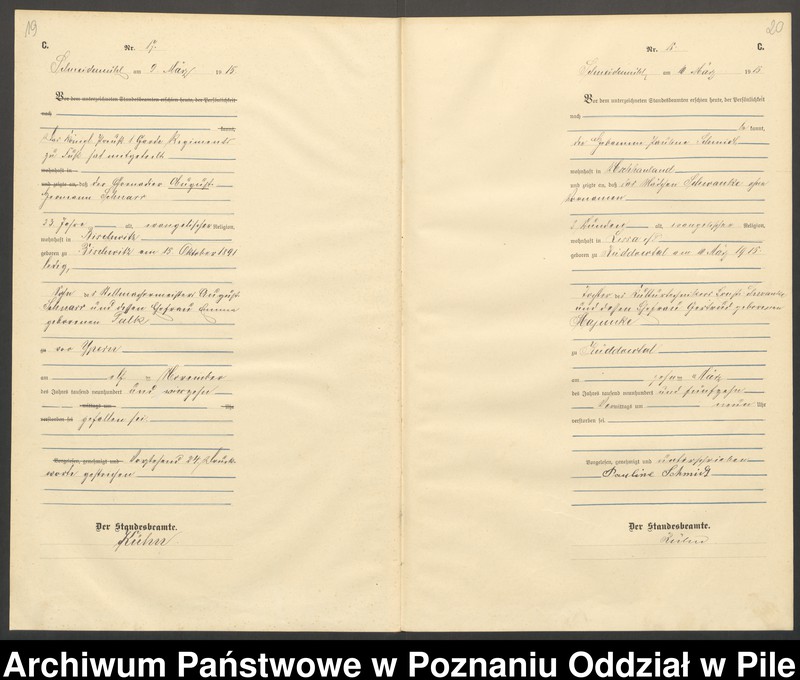 19
C.
Nr. 17.
Schneidemühl am 9 März 1915.
Vor dem unterzeichneten Standesbeamten erschien heute, der Persönlichkeit
nach
kannt,
Das Königl. Preuß. 1 Garde Regiments
zu Fuß hat mitgeteilt
wohnhaft in
und zeigte an, daß der Grenadier August
Hermann Schnarr
23 Jahre alt, evangelischer Religion,
wohnhaft in
geboren zu am 18. Oktober 1891
ledig,
Sohn des Stellmachermeisters August
Schnarr und dessen Ehefrau Emma
geborenen Falk
zu vor Ypern
am elf ten November
des Jahres tausend neunhundert und vierzehn
mittags um Uhr
verstorben sei gefallen sei
Vorgelesen, genehmigt und Vorstehend 24 Druck-
worte gestrichen
Der Standesbeamte.
Kühn
20
C.
Nr.
Schneidemühl, am März 1915.
Vor dem unterzeichneten Standesbeamten erschien heute, der Persönlichkeit
nach
be kannt,
die Hebamme Pauline Schmidt
wohnhaft in
und zeigte an, daß das Mädchen Schwanke ohne
Vornamen
2 Stunden alt, evangelischer Religion,
wohnhaft in
geboren zu Küddowtal am März 1915
Tochter des Ernst Schwanke
und dessen Ehefrau Gertrud geborenen
zu Küddowtal
am zehn ten März
des Jahres tausend neunhundert und fünfzehn
Vor mittags um neun Uhr
verstorben sei
Vorgelesen, genehmigt und unterschrieben
Pauline Schmidt
Der Standesbeamte.
Kühn
Archiwum Państwowe w Poznaniu Oddział w Pile